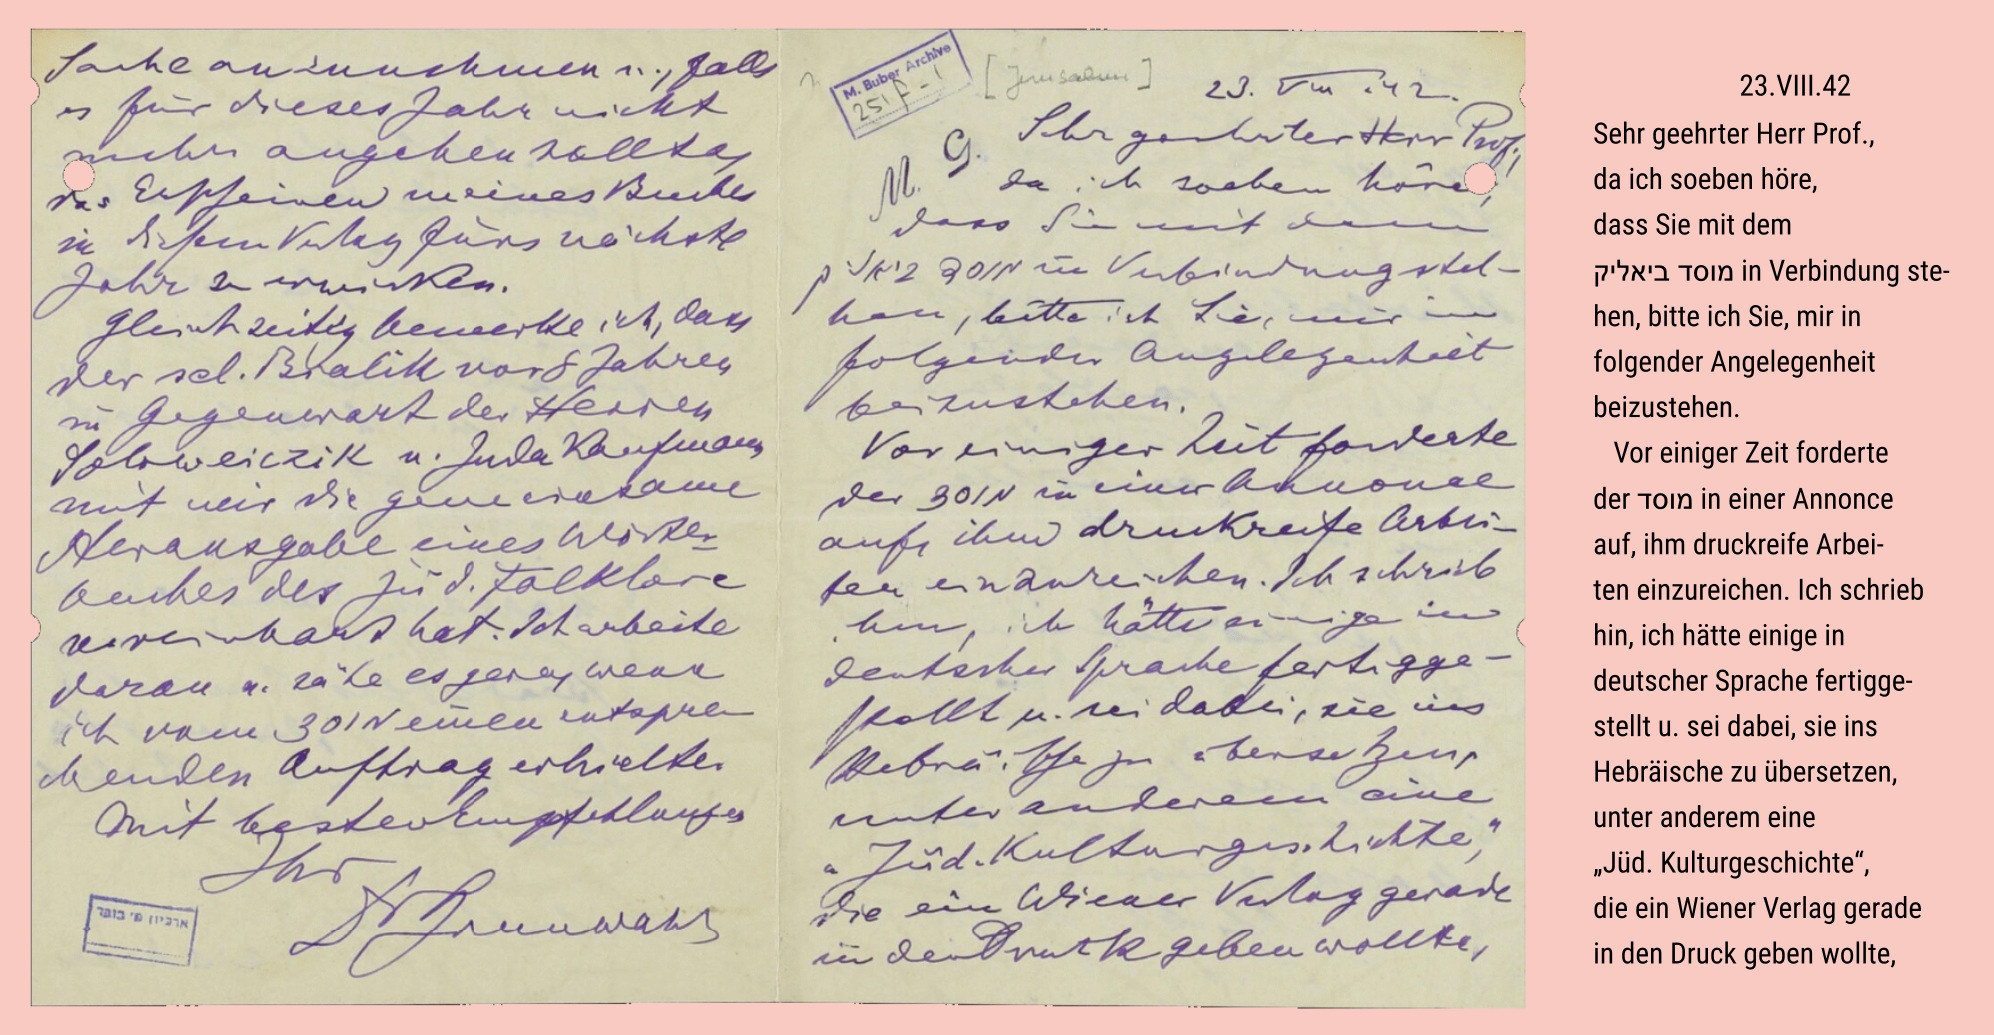 Sache anzunehmen u., falls
es für dieses Jahr nicht
mehr angehen sollte,
das Erscheinen meines Buches
in diesem Verlag fürs nächste
Jahr zu erwirken.
Gleichzeitig bemerke ich, dass
der sel. Bialik vor 8 Jahren
in Gegenwart der Herren
Soloweiczik u. Juda Kaufmann
mit mir die gemeinsame
Herausgabe eines Wörter-
buches des jüd. Folklore
vereinbart hat. Ich arbeite
daran u. sähe es gern, wenn
ich vom מוסד einen entspre-
chenden Auftrag erhielte.
Mit besten Empfehlungen
Ihr
Dr Grunwald
ארכיון מ׳ בובר
M. Buber Archive
251 F-1
[Jerusalem]
23. VIII .42.
M. G.
Sehr geehrter Herr Prof.,
da ich soeben höre,
dass Sie mit dem
מוסד ביאליק in Verbindung ste-
hen, bitte ich Sie, mir in
folgender Angelegenheit
beizustehen.
Vor einiger Zeit forderte
der מוסד in einer Annonce
auf, ihm druckreife Arbei-
ten einzureichen. Ich schrieb
hin, ich hätte einige in
deutscher Sprache fertigge-
stellt u. sei dabei, sie ins
Hebräische zu übersetzen,
unter anderem eine
„Jüd. Kulturgeschichte“,
die ein Wiener Verlag gerade
in den Druck geben wollte,
23.VIII.42
Sehr geehrter Herr Prof.,
da ich soeben höre,
dass Sie mit dem
מוסד ביאליק in Verbindung ste-
hen, bitte ich Sie, mir in
folgender Angelegenheit
beizustehen.
Vor einiger Zeit forderte
der מוסד in einer Annonce
auf, ihm druckreife Arbei-
ten einzureichen. Ich schrieb
hin, ich hätte einige in
deutscher Sprache fertigge-
stellt u. sei dabei, sie ins
Hebräische zu übersetzen,
unter anderem eine
„Jüd. Kulturgeschichte“,
die ein Wiener Verlag gerade
in den Druck geben wollte,